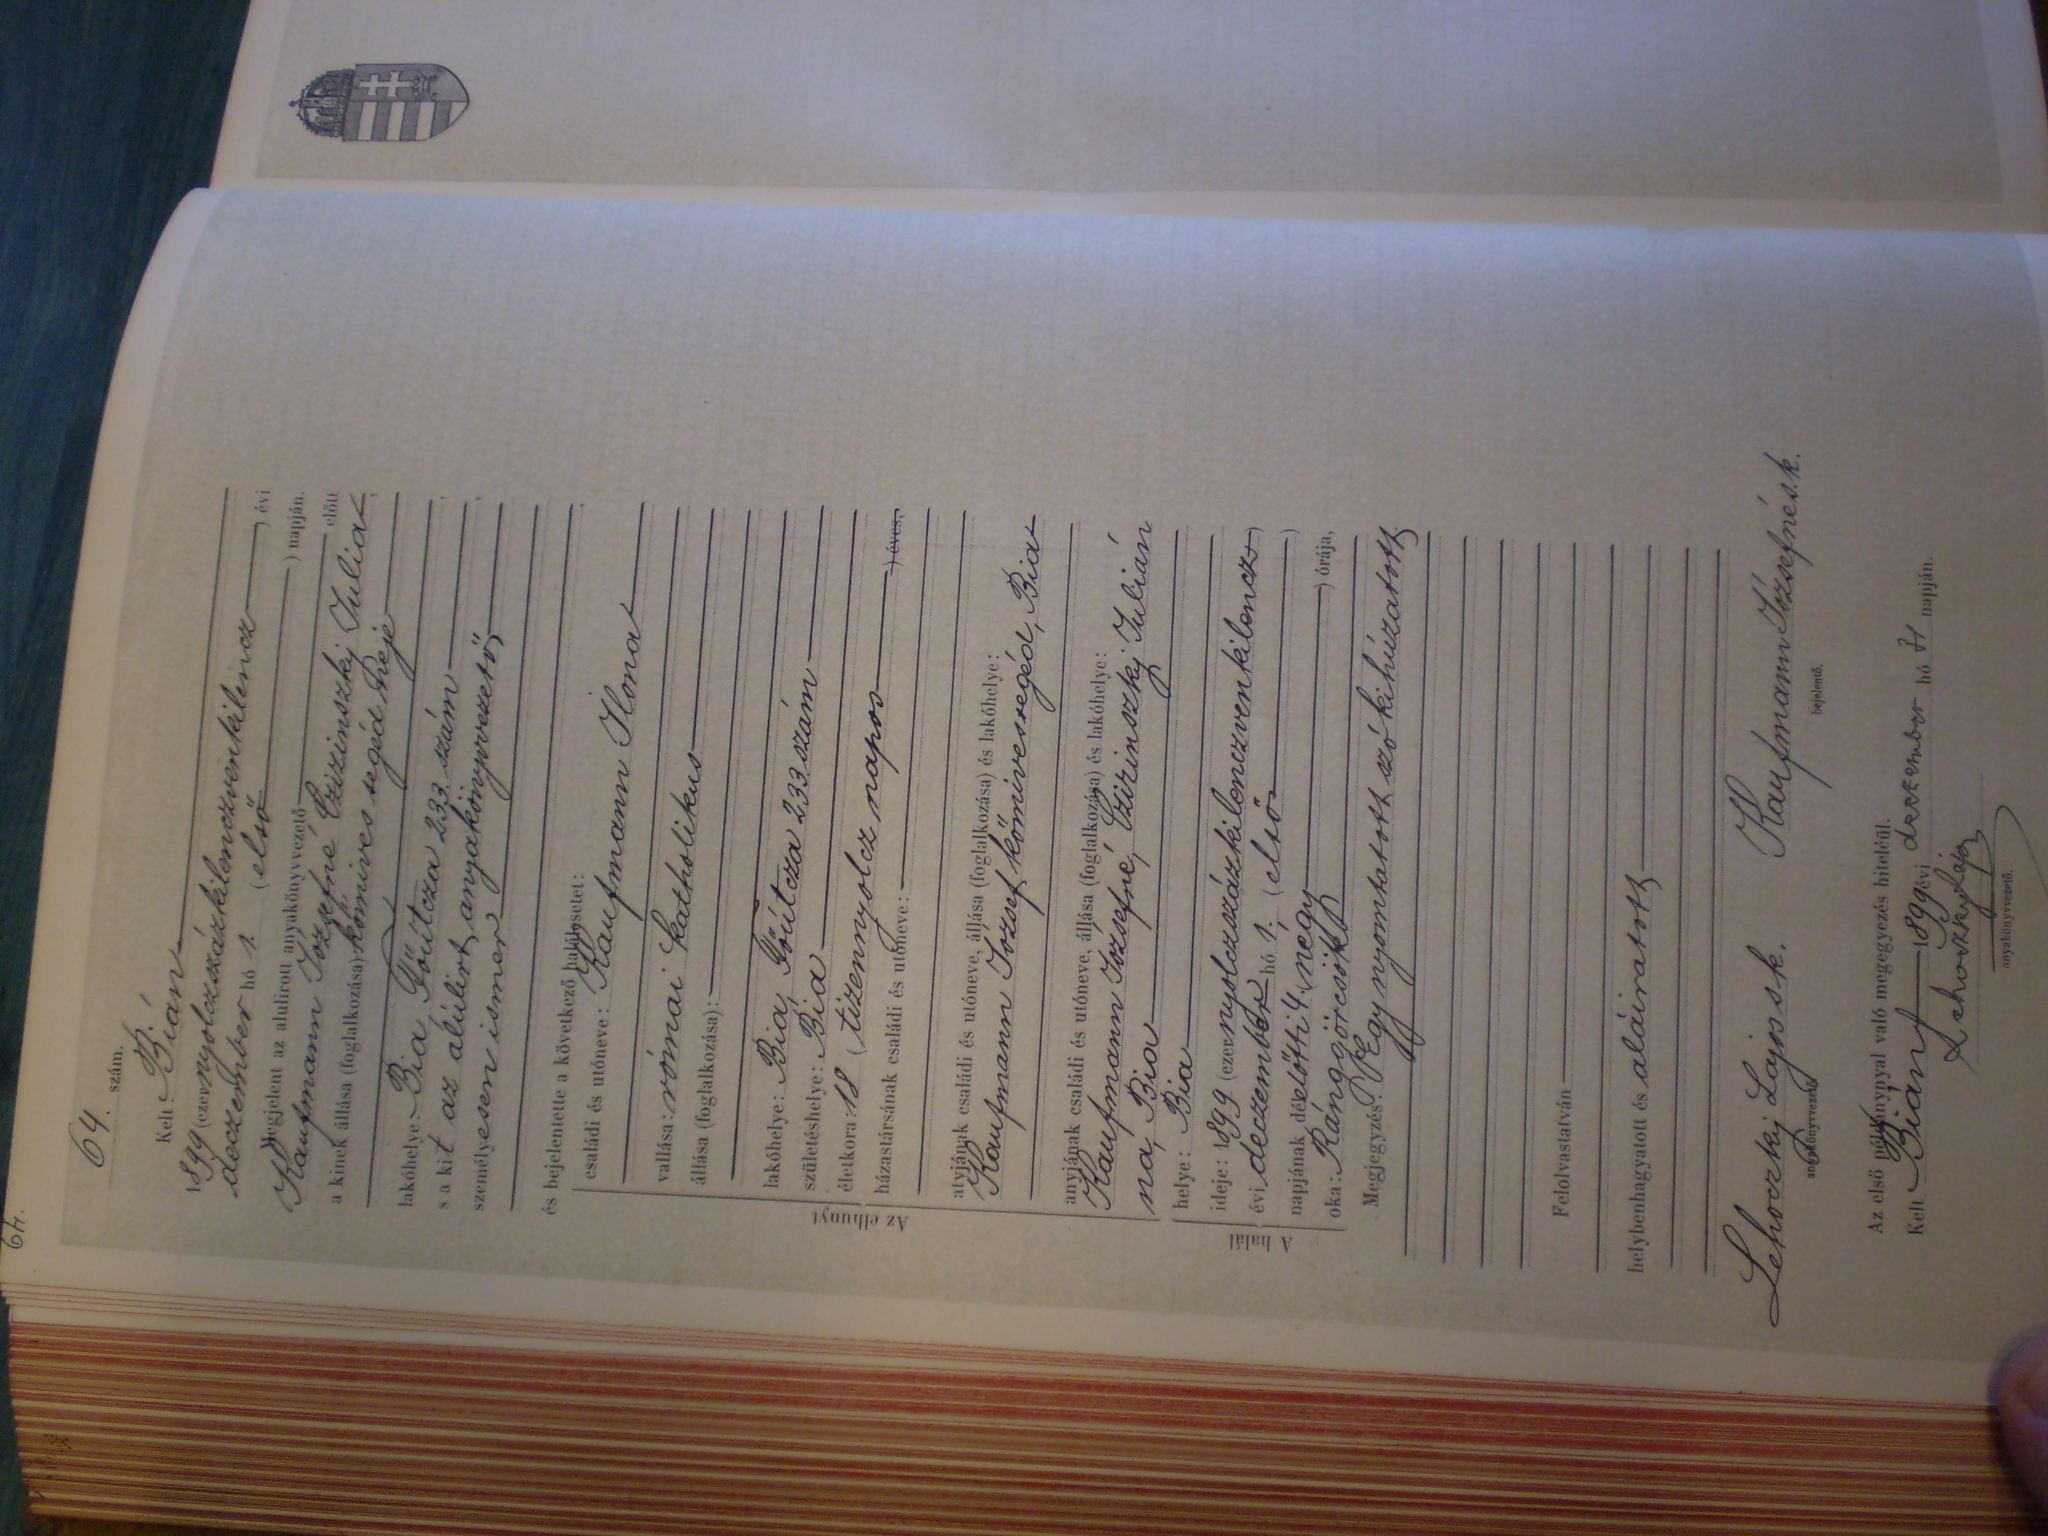 64.
64. szám.
Kelt Bián
1899 (ezernyolczszázkilenczvenkilencz) évi
deczember hó 1. (első) napján.
Megjelent az alulirott anyakönyvvezető előtt
Kaufmann Józsefné Czizinszky Julia
a kinek állása (foglalkozása) kőmives segéd neje
lakóhelye: Bia Főutcza 233 szám
s a kit az alulirt anyakönyvvezető
személyesen ismer
és bejelentette a következő halálesetet:
Az elhunyt
családi és utóneve: Kaufmann Ilona
vallása: római katholikus
állása (foglalkozása):
lakóhelye: Bia, Főutcza 233 szám
születéshelye: Bia
életkora: 18 (tizennyolcz napos ) éves,
házastársának családi és utóneve:
atyjának családi és utóneve, állása (foglalkozása) és lakóhelye:
Kaufmann József kőmivessegéd, Bia
anyjának családi és utóneve, állása (foglalkozása) és lakóhelye:
Kaufmann Józsefné, Czizinszky Julián
na, Bia
A halál
helye: Bia
ideje: 1899 (ezernyolczszázkilenczvenkilencz)
évi deczember hó 1. (első )
napjának délelőtti 4. (négy ) órája,
oka: Rángörcsök
Megjegyzés: Egy nyomtatott szó kihúzatott
Felolvastatván
helybenhagyatott és aláiratott
Lehoczky Lajos s.k. Kaufmann Józsefné s.k.
anyakönyvvezető. bejelentő.
Az első példánynyal való megegyezés hiteléül.
Kelt Bián 1899 évi deczember hó 31 napján.
Lehoczky Lajos
anyakönyvvezető.